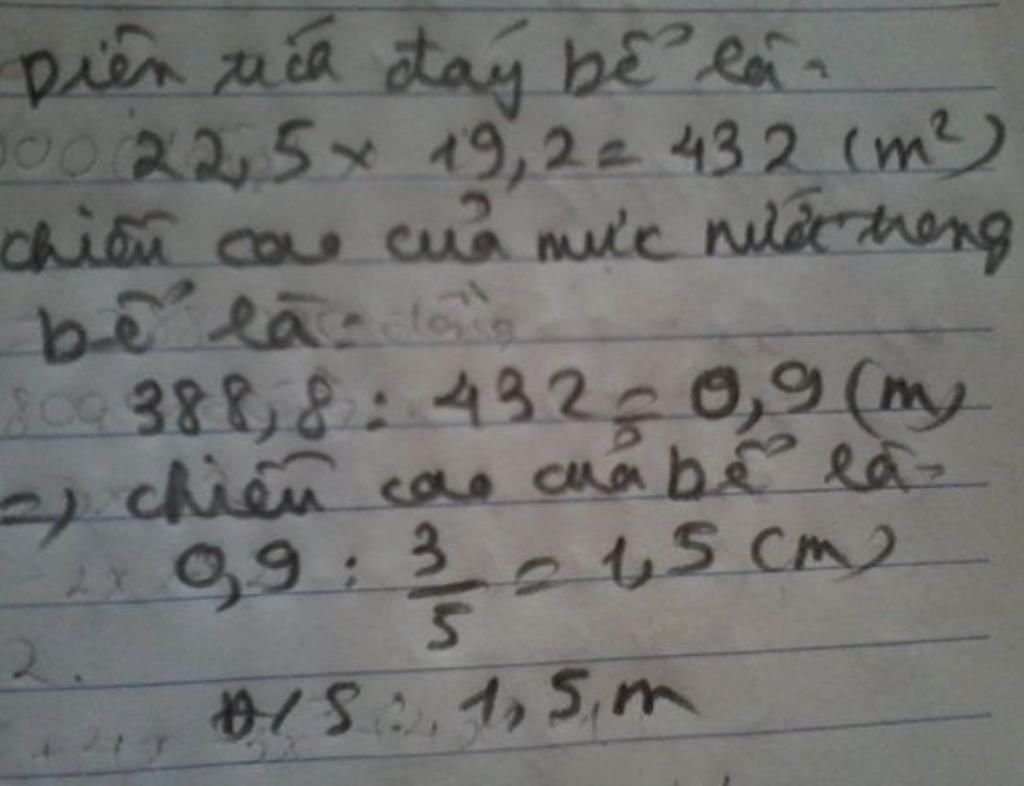 Diện tích đáy bể là:
22,5 x 19,2 = 432 (m²)
chiều cao của mực nước trong
bể là:
388,8 : 432 = 0,9 (m)
=> chiều cao của bể là:
0,9 : 3/5 = 1,5 (m)
2.
Đ/S: 1,5 m